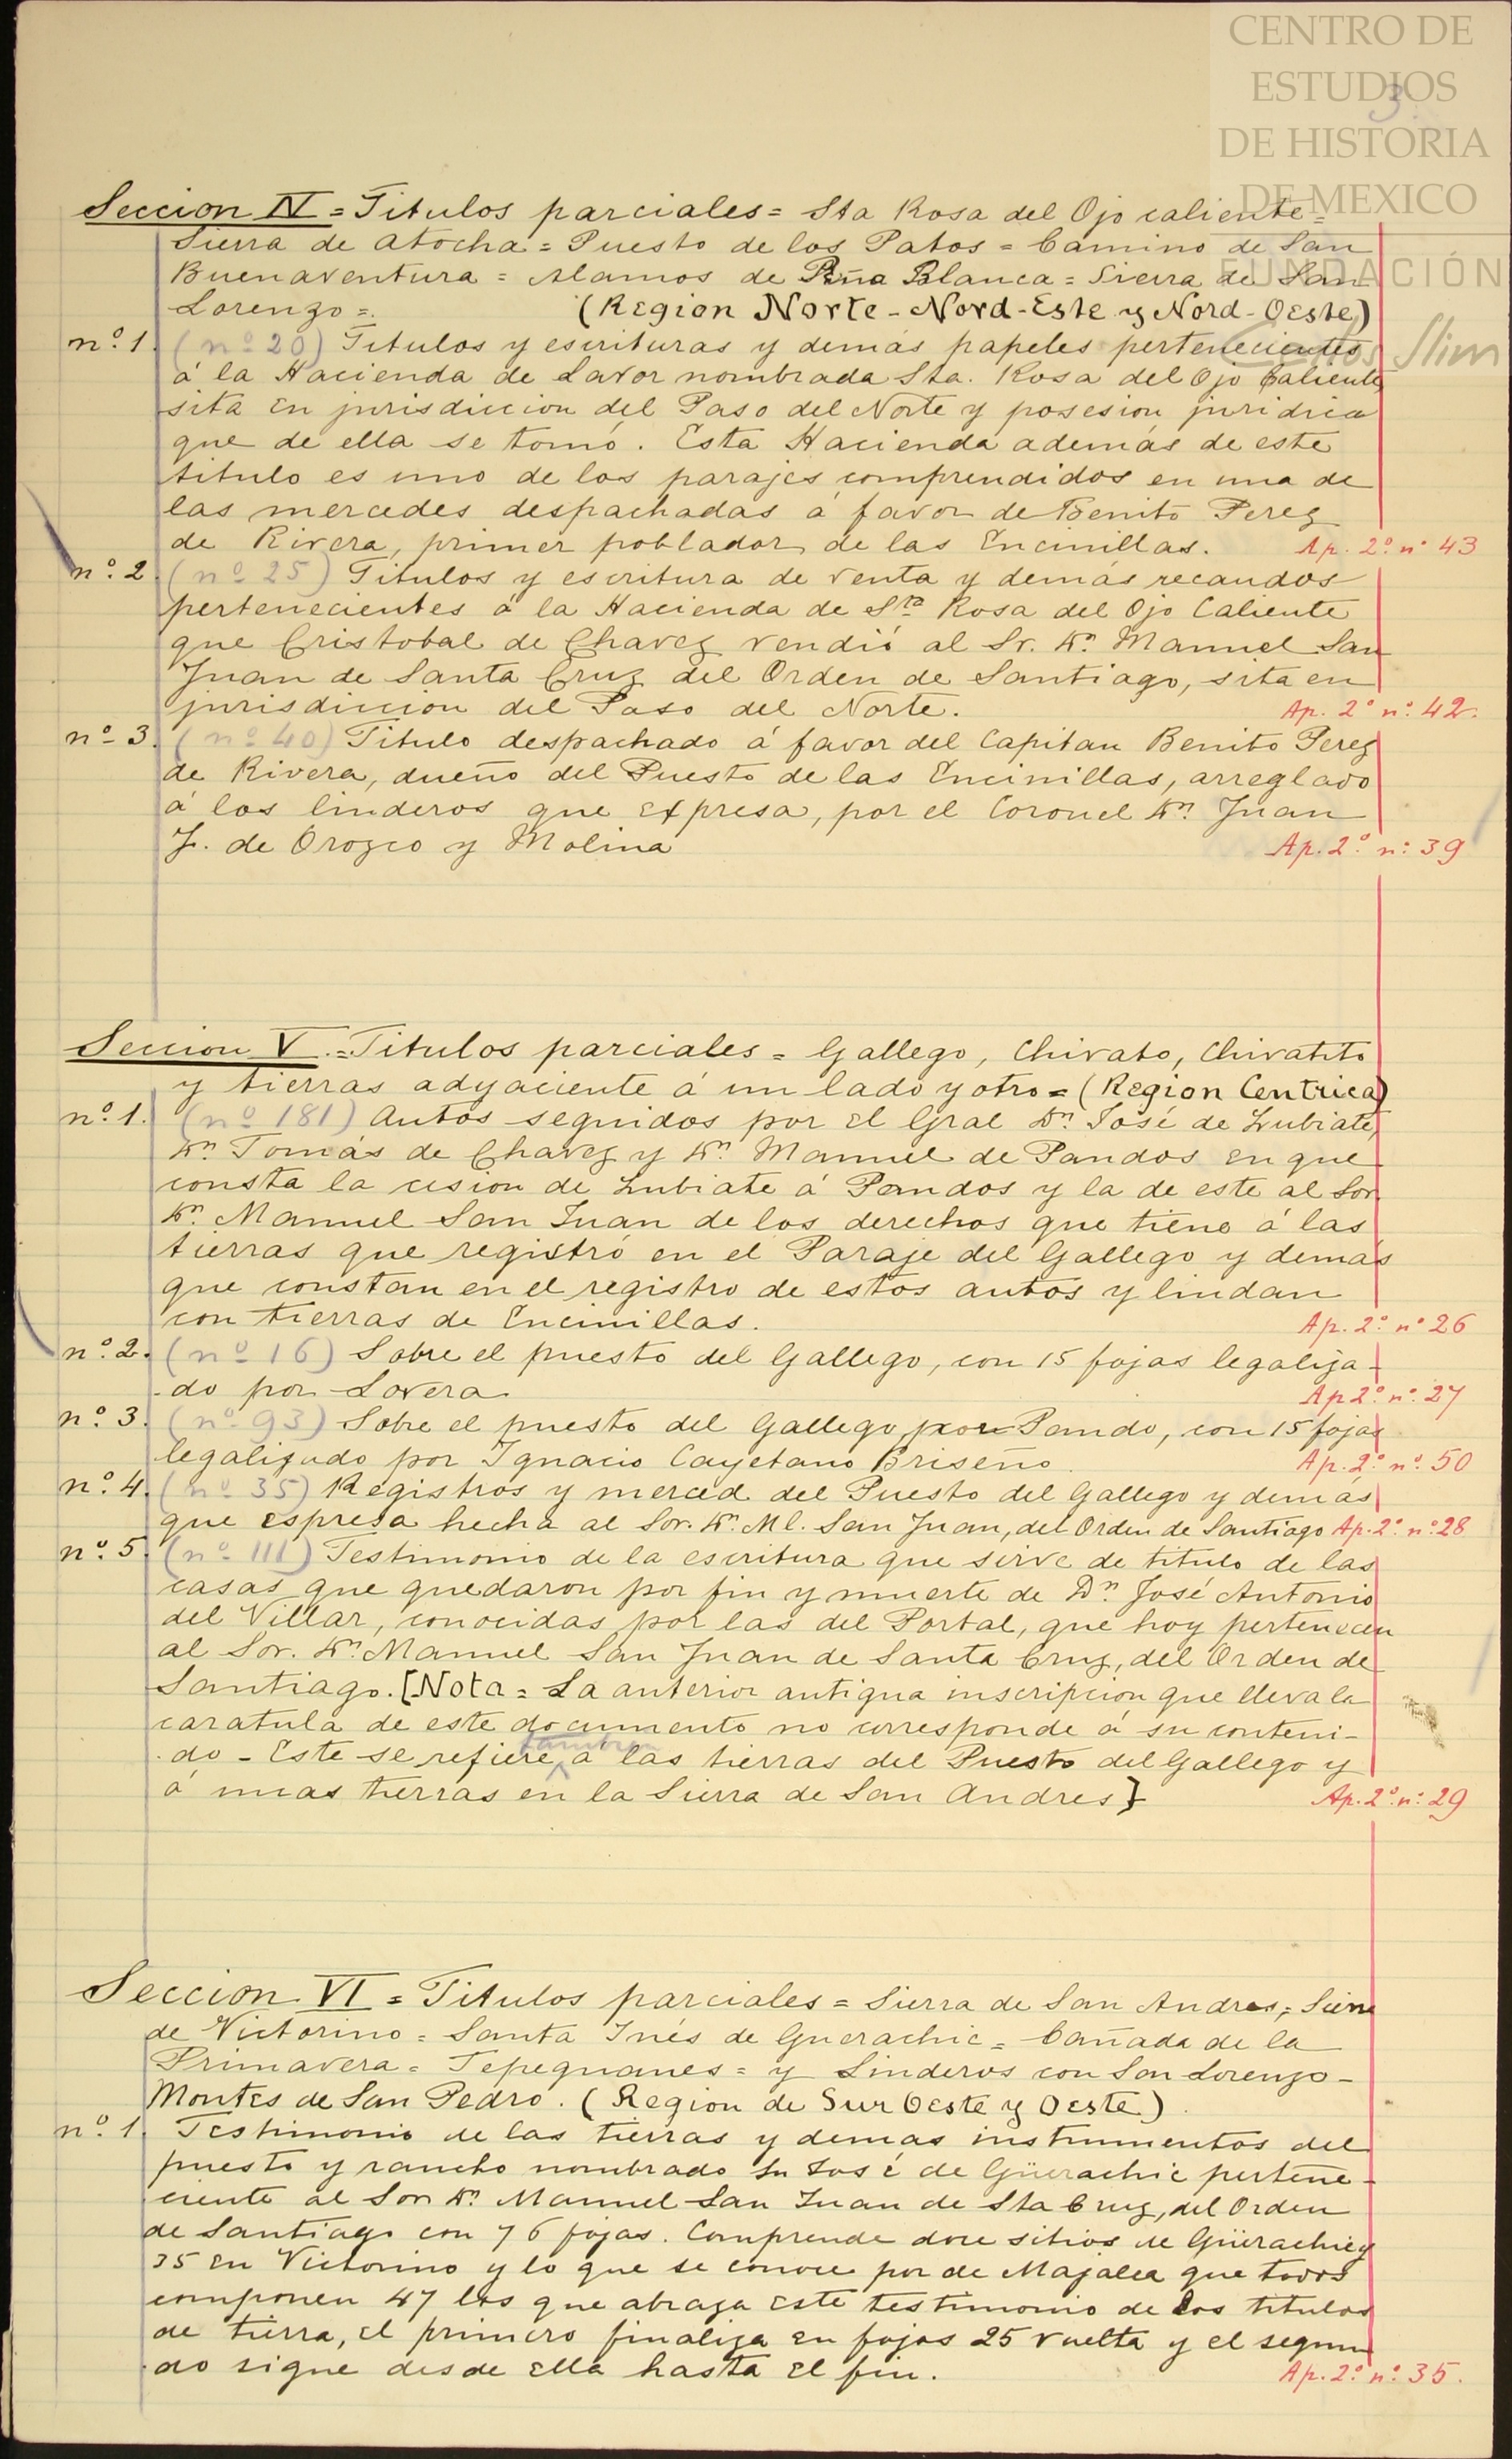 CENTRO DE
ESTUDIOS
DE HISTORIA
DE MEXICO
FUNDACIÓN
Carlos Slim
3.
Seccion IV = Titulos parciales = Sta Rosa del Ojo caliente =
Sierra de Atocha = Puesto de los Patos = Camino de San
Buenaventura = Alamos de Peña Blanca = Sierra de San
Lorenzo =. (Region Norte - Nord-Este y Nord-Oeste)
nº. 1. (nº 20) Titulos y escrituras y demás papeles pertenecientes
á la Hacienda de Lavor nombrada Sta. Rosa del Ojo Caliente
sita en jurisdiccion del Paso del Norte y posesion juridica
que de ella se tomó. Esta Hacienda además de este
titulo es uno de los parajes comprendidos en una de
las mercedes despachadas á favor de Benito Perez
de Rivera, primer poblador de las Encinillas. Ap. 2º. nº 43
nº. 2. (nº 25) Titulos y escritura de venta y demás recaudos
pertenecientes á la Hacienda de Sta Rosa del Ojo Caliente
que Cristobal de Chavez vendió al Sr. Dn. Manuel San
Juan de Santa Cruz del Orden de Santiago, sita en
jurisdiccion del Paso del Norte. Ap. 2º nº. 42.
nº 3. (nº 40) Titulo despachado á favor del Capitan Benito Perez
de Rivera, dueño del Puesto de las Encinillas, arreglado
á los linderos que expresa, por el Coronel Dn. Juan
J. de Orozco y Molina Ap. 2º. nº. 39
Seccion V. = Titulos parciales = Gallego, Chivato, Chivatito
y tierras adyaciente á un lado y otro = (Region Centrica)
nº. 1. (nº 181) Autos seguidos por el Gral Dn. José de Zubiate,
Dn. Tomás de Chavez y Dn. Manuel de Pandos en que
consta la cesion de Zubiate á Pandos y la de este al Sor
Dn. Manuel San Juan de los derechos que tiene á las
tierras que registró en el Paraje del Gallego y demás
que constan en el registro de estos autos y lindan
con tierras de Encinillas. Ap. 2º. nº 26
nº. 2. (nº 16) Sobre el puesto del Gallego, con 15 fojas legaliza-
do por Lovera Ap 2º. nº. 27
nº. 3. (nº 93) Sobre el puesto del Gallego por Pando, con 15 fojas
legalizado por Ignacio Cayetano Briseño. Ap. 2º. nº. 50
nº. 4. (nº 35) Registros y merced del Puesto del Gallego y demás
que espresa hecha al Sor. Dn. Ml. San Juan, del Orden de Santiago Ap. 2º. nº. 28
nº. 5. (nº 111) Testimonio de la escritura que sirve de titulo de las
casas que quedaron por fin y muerte de Dn. José Antonio
del Villar, conocidas por las del Portal, que hoy pertenecen
al Sor. Dn. Manuel San Juan de Santa Cruz, del Orden de
Santiago. [Nota = La anterior antigua inscripcion que lleva la
caratula de este documento no corresponde á su conteni-
tambien
do - Este se refiere á las tierras del Puesto del Gallego y
á unas tierras en la Sierra de San Andres] Ap. 2º. nº. 29
Seccion VI = Titulos parciales = Sierra de San Andres, = Sierra
de Victorino = Santa Inés de Guerachic = Cañada de la
Primavera = Tepeguanes = y Linderos con San Lorenzo -
Montes de San Pedro. (Region de Sur Oeste y Oeste).
nº. 1. Testimonio de las tierras y demas instrumentos del
puesto y rancho nombrado Sn José de Güerachic pertene-
ciente al Sor Dn. Manuel San Juan de Sta Cruz, del Orden
de Santiago con 76 fojas. Comprende doce sitios de Güerachic y
35 en Victorino y lo que se conoce por de Majalca que todos
componen 47 los que abraza este testimonio de los titulos
de tierra, el primero finaliza en fojas 25 vuelta y el segun
do sigue desde ella hasta el fin. Ap. 2º. nº. 35.